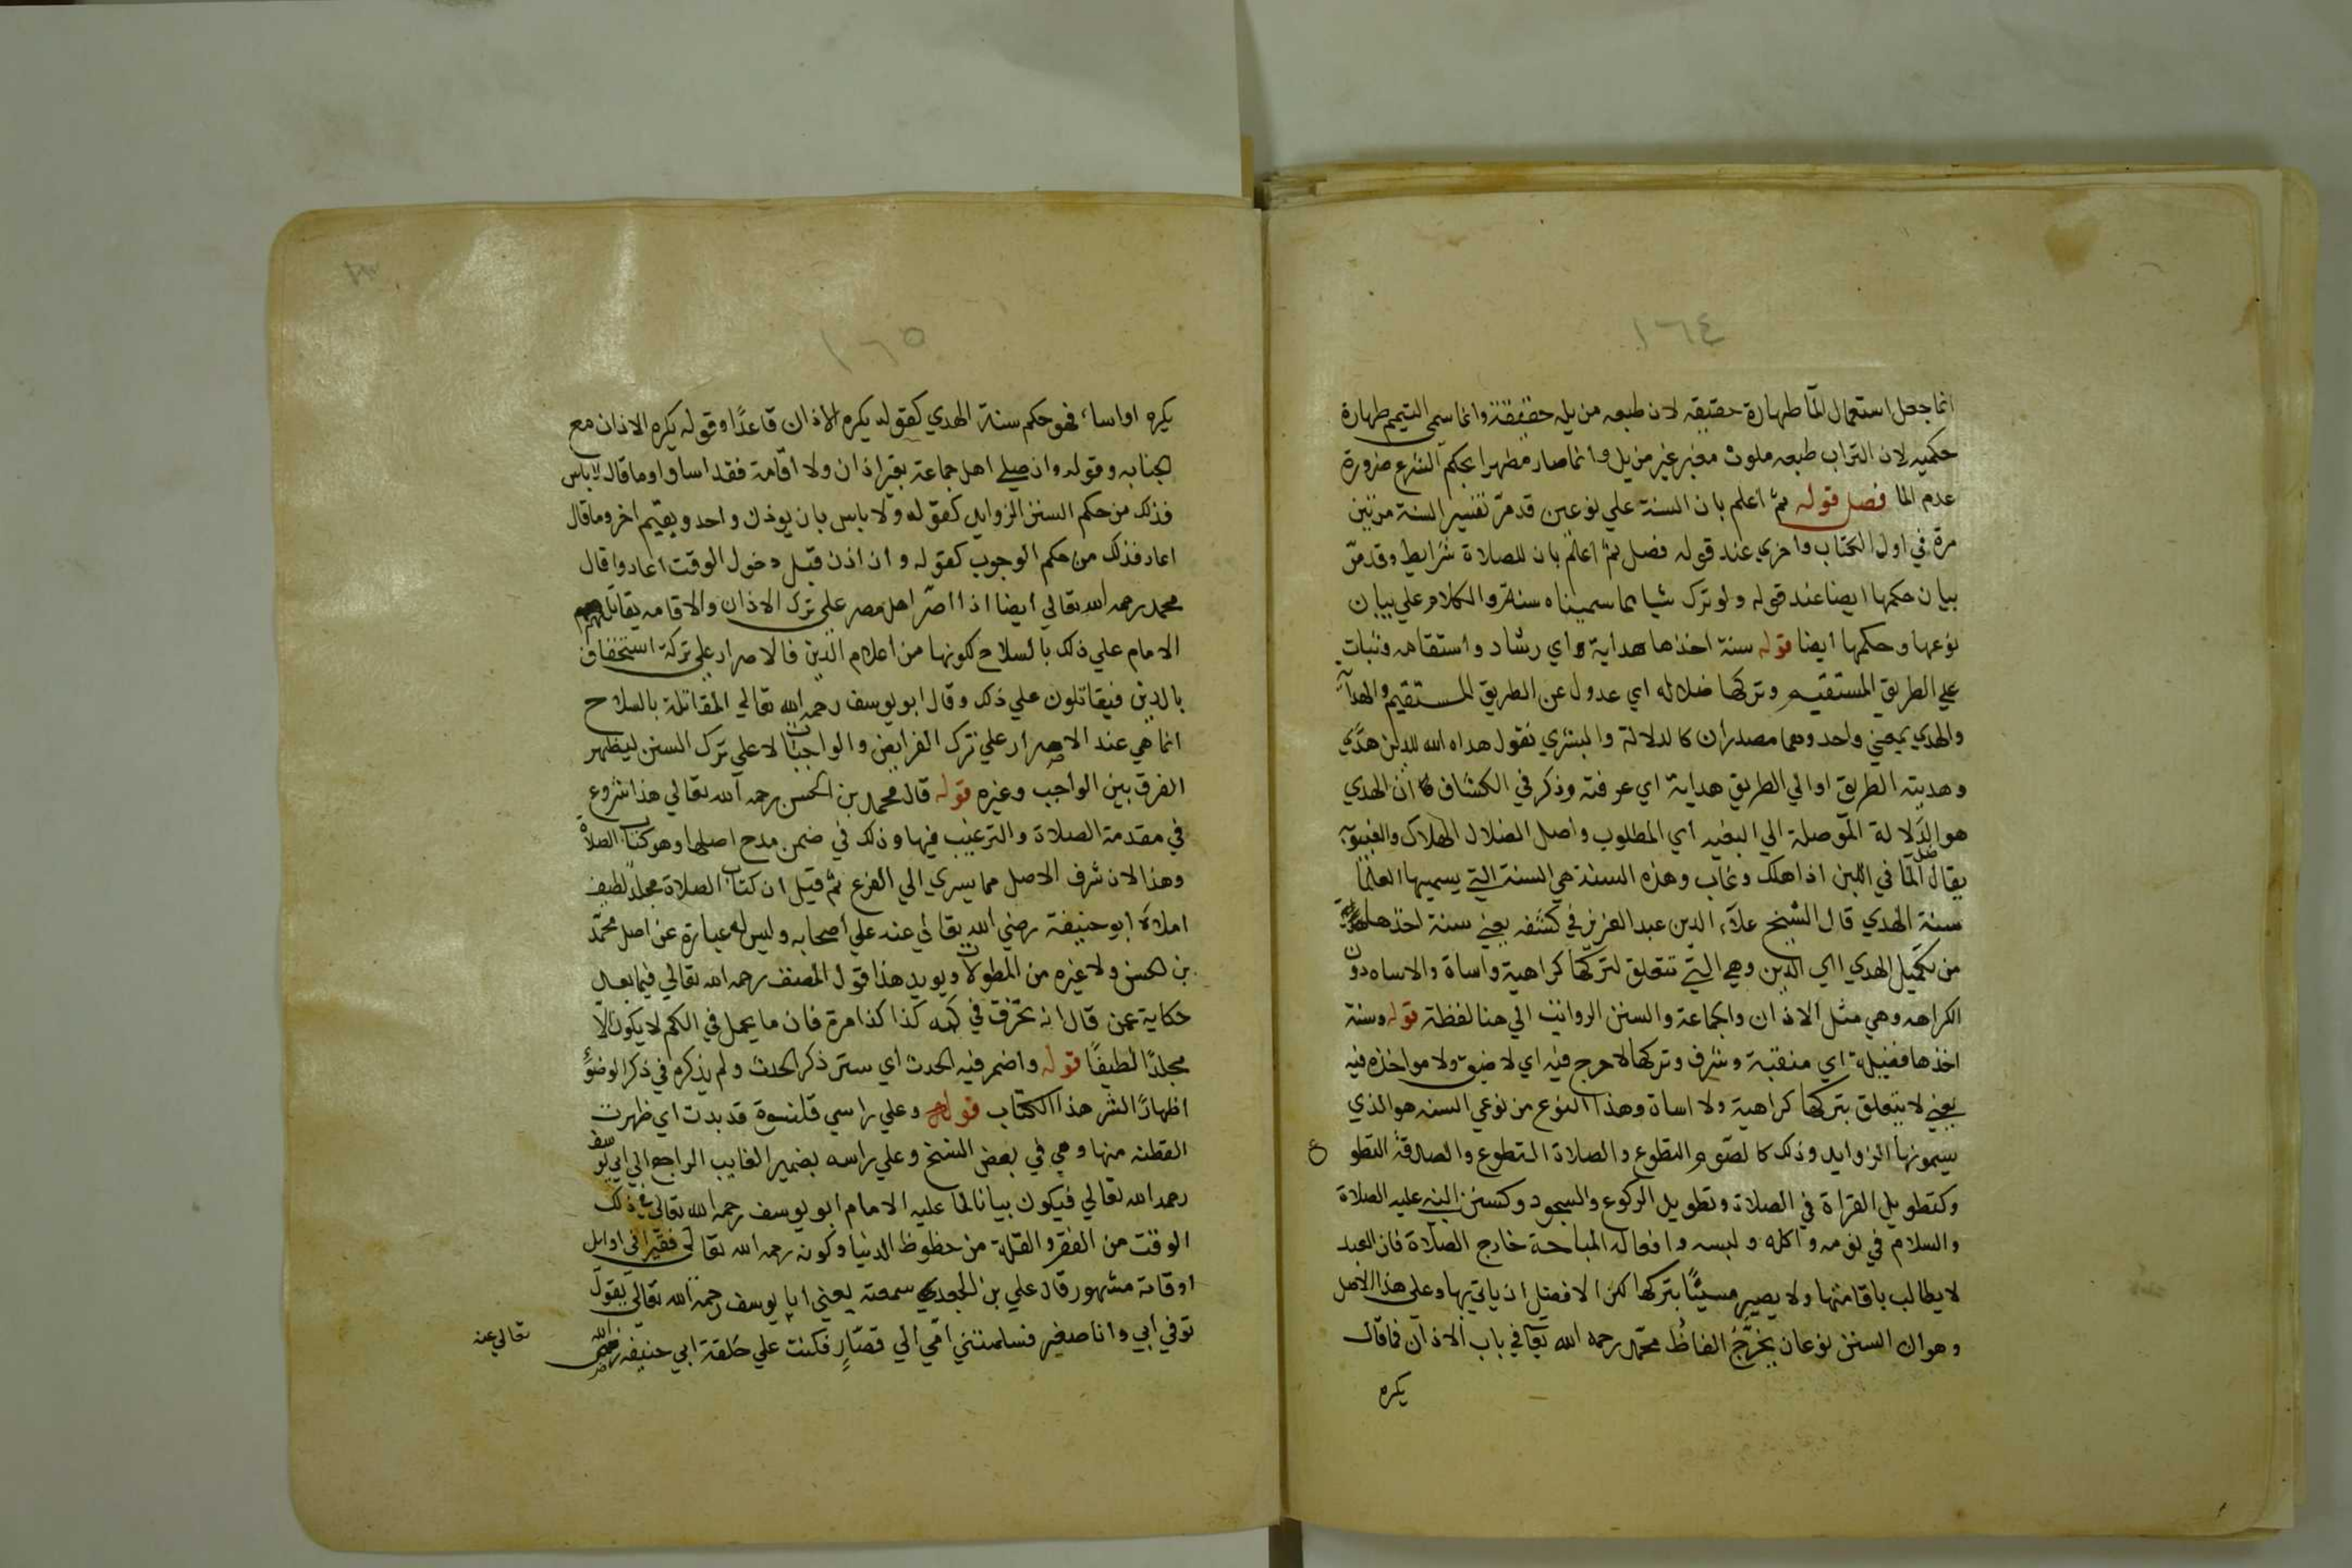 ١٦٤
انما جعل استعمال الما طهارة حقيقه لان طبعه مزيله حقيقة وانما سمي التيمم طهارة
حكميه لان التراب طبعه ملوث مغبر غير مزيل وانما صار مطهرا بحكم الشرع ضرورة
عدم الما فصل قوله ثم اعلم بان السنة علي نوعين قد مر تفسير السنة مرتين
مرة في اول الكتاب واخري عند قوله فصل ثم اعلم بان للصلاة شرايط وقد مر
بيان حكمها ايضا عند قوله ولو ترك شيا مما سميناه سنة والكلام علي بيان
نوعها وحكمها ايضا قوله سنة اخذها هداية اي رشاد واستقامه وثبات
علي الطريق المستقيم وتركها ضلاله اي عدول عن الطريق المستقيم والهداية
والهدي بمعني واحد وهما مصدران كالدلالة والبشري تقول هداه الله للدين هدًي
وهديته الطريق اوالي الطريق هداية اي عرفته وذكر في الكشاف ان الهدي
هو الدلالة الموصلة الي البغيه اي المطلوب واصل الضلال الهلاك والغيبوبة
يقال ضل الما في اللبن اذا هلك وغاب وهذه السنة هي السنة التي يسميها العلما
سنة الهدي قال الشيخ علاء الدين عبد العزيز في كشفه يعني سنة اخذها
من تكميل الهدي اي الدين وهي التي تتعلق لتركها كراهية واساة والاساه دون
الكراهه وهي مثل الاذان والجماعة والسنن الرواتب الي هنا لفظة قوله وسنة
اخذها فضيلة اي منقبة وشرف وتركها لا حرج فيه اي لا ضيق ولا مواخذه فيه
يعني لا يتعلق بتركها كراهية ولا اساة وهذا النوع من نوعي السنه هو الذي
يسمونها الزوايد وذلك كالصوم التطوع والصلاة التطوع والصدقة التطو ع
وكتطويل القراة في الصلاة وتطويل الركوع والسجود وكسنن النبي عليه الصلاة
والسلام في نومه واكله ولبسه وافعاله المباحة خارج الصلاة فان العبد
لا يطالب باقامتها ولا يصير مسيئًا بتركها لكن الافضل ان ياتي بها وعلى هذا الاصل
وهو ان السنن نوعان يخرج الفاظ محمد رحمه الله تعا في باب الاذان فما قال
يكره
١٦٥
يكره او اساء فهو حكم سنة الهدي كقوله يكره الاذان قاعدًا وقوله يكره الاذان مع
الجنابه وقوله وان صلي اهل جماعة بغير اذان ولا اقامة فقد اساوا وما قال لا باس
فذلك من حكم السنن الزوايد كقوله ولا باس بان يوذن واحد ويقيم اخر وما قال
اعاد فذلك من حكم الوجوب كقوله وان اذن قبل دخول الوقت اعاد وقال
محمد رحمه الله تعالي ايضا اذا اصر اهل مصر علي ترك الاذان والاقامه يقاتلهم
الامام علي ذلك بالسلاح لكونها من اعلام الدين فالاصرار علي تركه استخفاف
بالدين فيقاتلون علي ذلك وقال ابو يوسف رحمه الله تعالي المقاتلة بالسلاح
انما هي عند الاصرار علي ترك الفرايض والواجبات لا علي ترك السنن ليظهر
الفرق بين الواجب وغيره قوله قال محمد بن الحسن رحمه الله تعالي هذا شروع
في مقدمة الصلاة والترغيب فيها وذلك في ضمن مدح اصلها وهو كتاب الصلاة
وهذا لان شرف الاصل مما يسري الي الفرع ثم قيل ان كتاب الصلاة مجلد لطيف
املاه ابو حنيفة رضي الله تعالي عنه علي اصحابه وليس له عبارة عن اصل محمد
بن الحسن ولا غيره من المطولات ويويد هذا قول المصنف رحمه الله تعالي فيما بعد
حكاية عمن قال انه تخرق في كمه كذا كذا مرة فان ما يحمل في الكم لا يكون الا
مجلدًا لطيفًا قوله واضمر فيه الحدث اي ستر ذكر الحدث ولم يذكره في ذكر الوضوء
اظهارًا لشر هذا الكتاب قوله وعلي راسي قلنسوة قد بدت اي ظهرت
القطنه منها وهي في بعض النسخ وعلي راسه بضمير الغايب الراجع الي ابي يوسف
رحمه الله تعالي فيكون بيانا لما عليه الامام ابو يوسف رحمه الله تعالي في ذلك
الوقت من الفقر والقلة من حظوظ الدنيا وكونه رحمه الله تعالي فقيرا في اوايل
اوقاته مشهور قال علي بن الجعدي سمعته يعني ابا يوسف رحمه الله تعالي يقول
توفي ابي وانا صغير فسلمتني امي الي قصار فكنت علي حلقة ابي حنيفه رضي الله
تعالي عنه